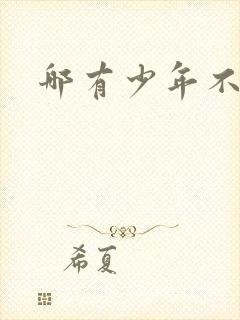 那有少年不
希夏